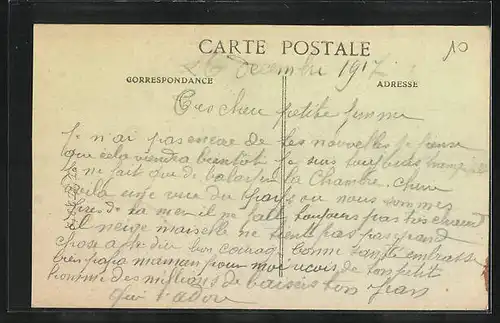 CARTE POSTALE
26 Decembre 1917
10
CORRESPONDANCE
ADRESSE
Tres cheri petite femme
Je n'ai pas encore de tes nouvelles je pense
que cela viendra bientot Je suis toujours
Je ne fait que de balayer la Chambre. cherie
voila une vue du ou nous sommes
de la mer il ne fait toujours pas tres chaud
il neige mais elle ne tient pas pas grand
chose a te dire bon courage bonne sante embrasse
bien papa maman pour moi recois de ton petit
homme des millions de baisers ton Jean
qui t'adore